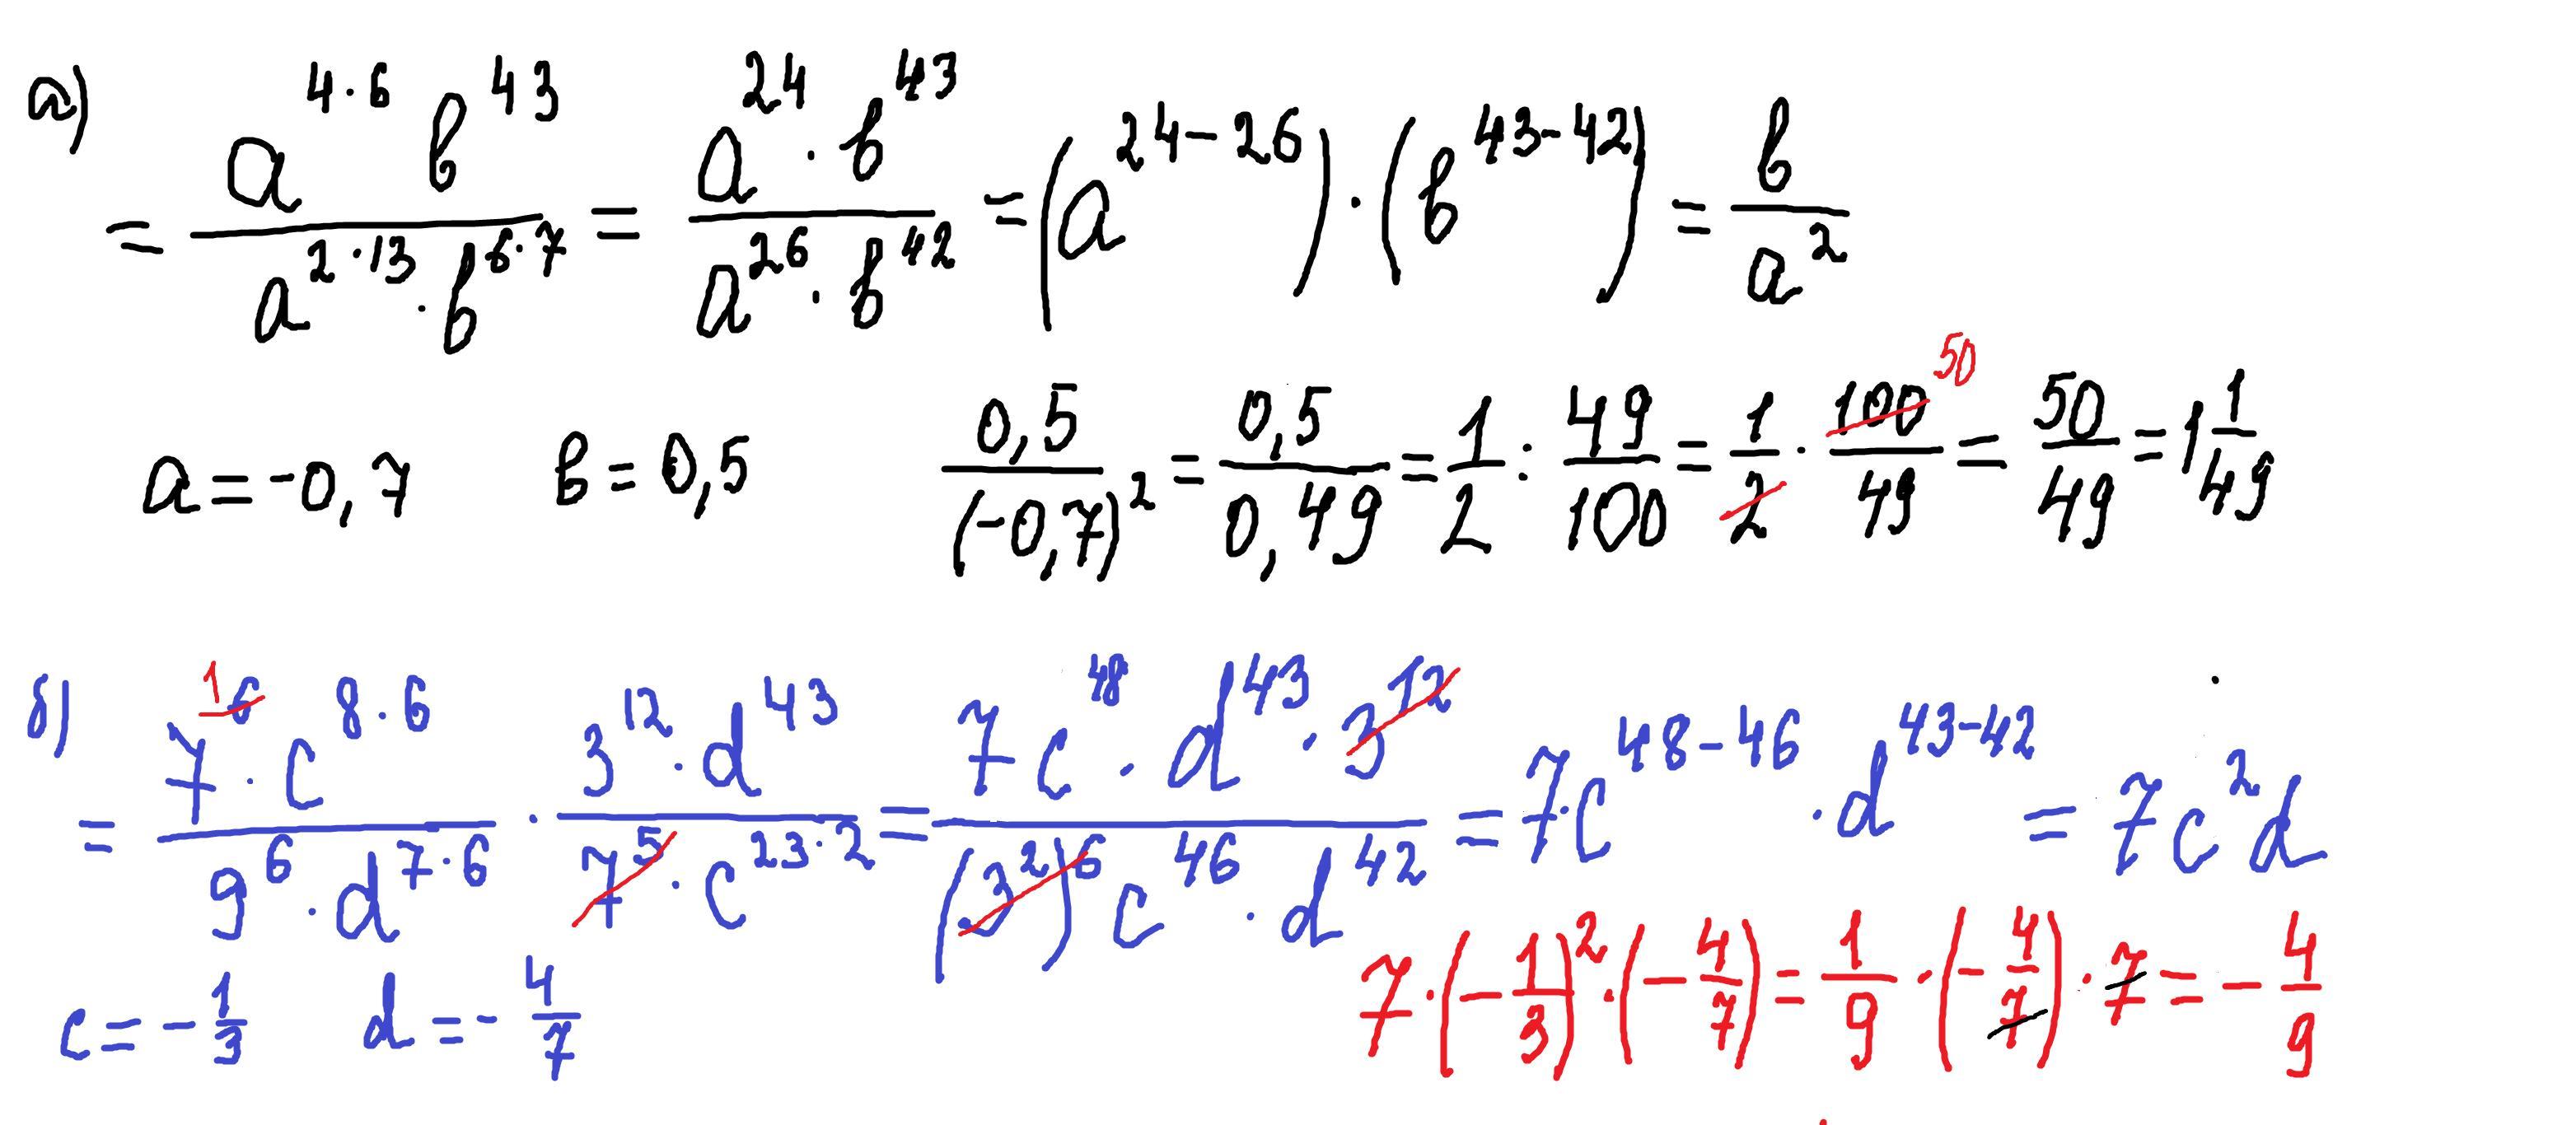 а) = a^{4·6} b^{43} / a^{2·13} · b^{6·7} = a^{24} · b^{43} / a^{26} · b^{42} = (a^{24-26}) · (b^{43-42}) = b / a^2
a = -0,7 b = 0,5 0,5 / (-0,7)^2 = 0,5 / 0,49 = 1/2 : 49/100 = 1/2 · 100/49 50 = 50/49 = 1 1/49
б) = 7^6 1 · c^{8·6} / 9^6 · d^{7·6} · 3^{12} · d^{43} / 7^5 · c^{23·2} = 7c^{48} · d^{43} · 3^{12} / (3^2)^6 c^{46} · d^{42} = 7·c^{48-46} · d^{43-42} = 7c^2d
c = -1/3 d = -4/7 7·(-1/3)^2·(-4/7) = 1/9 · (-4/7) · 7 = -4/9